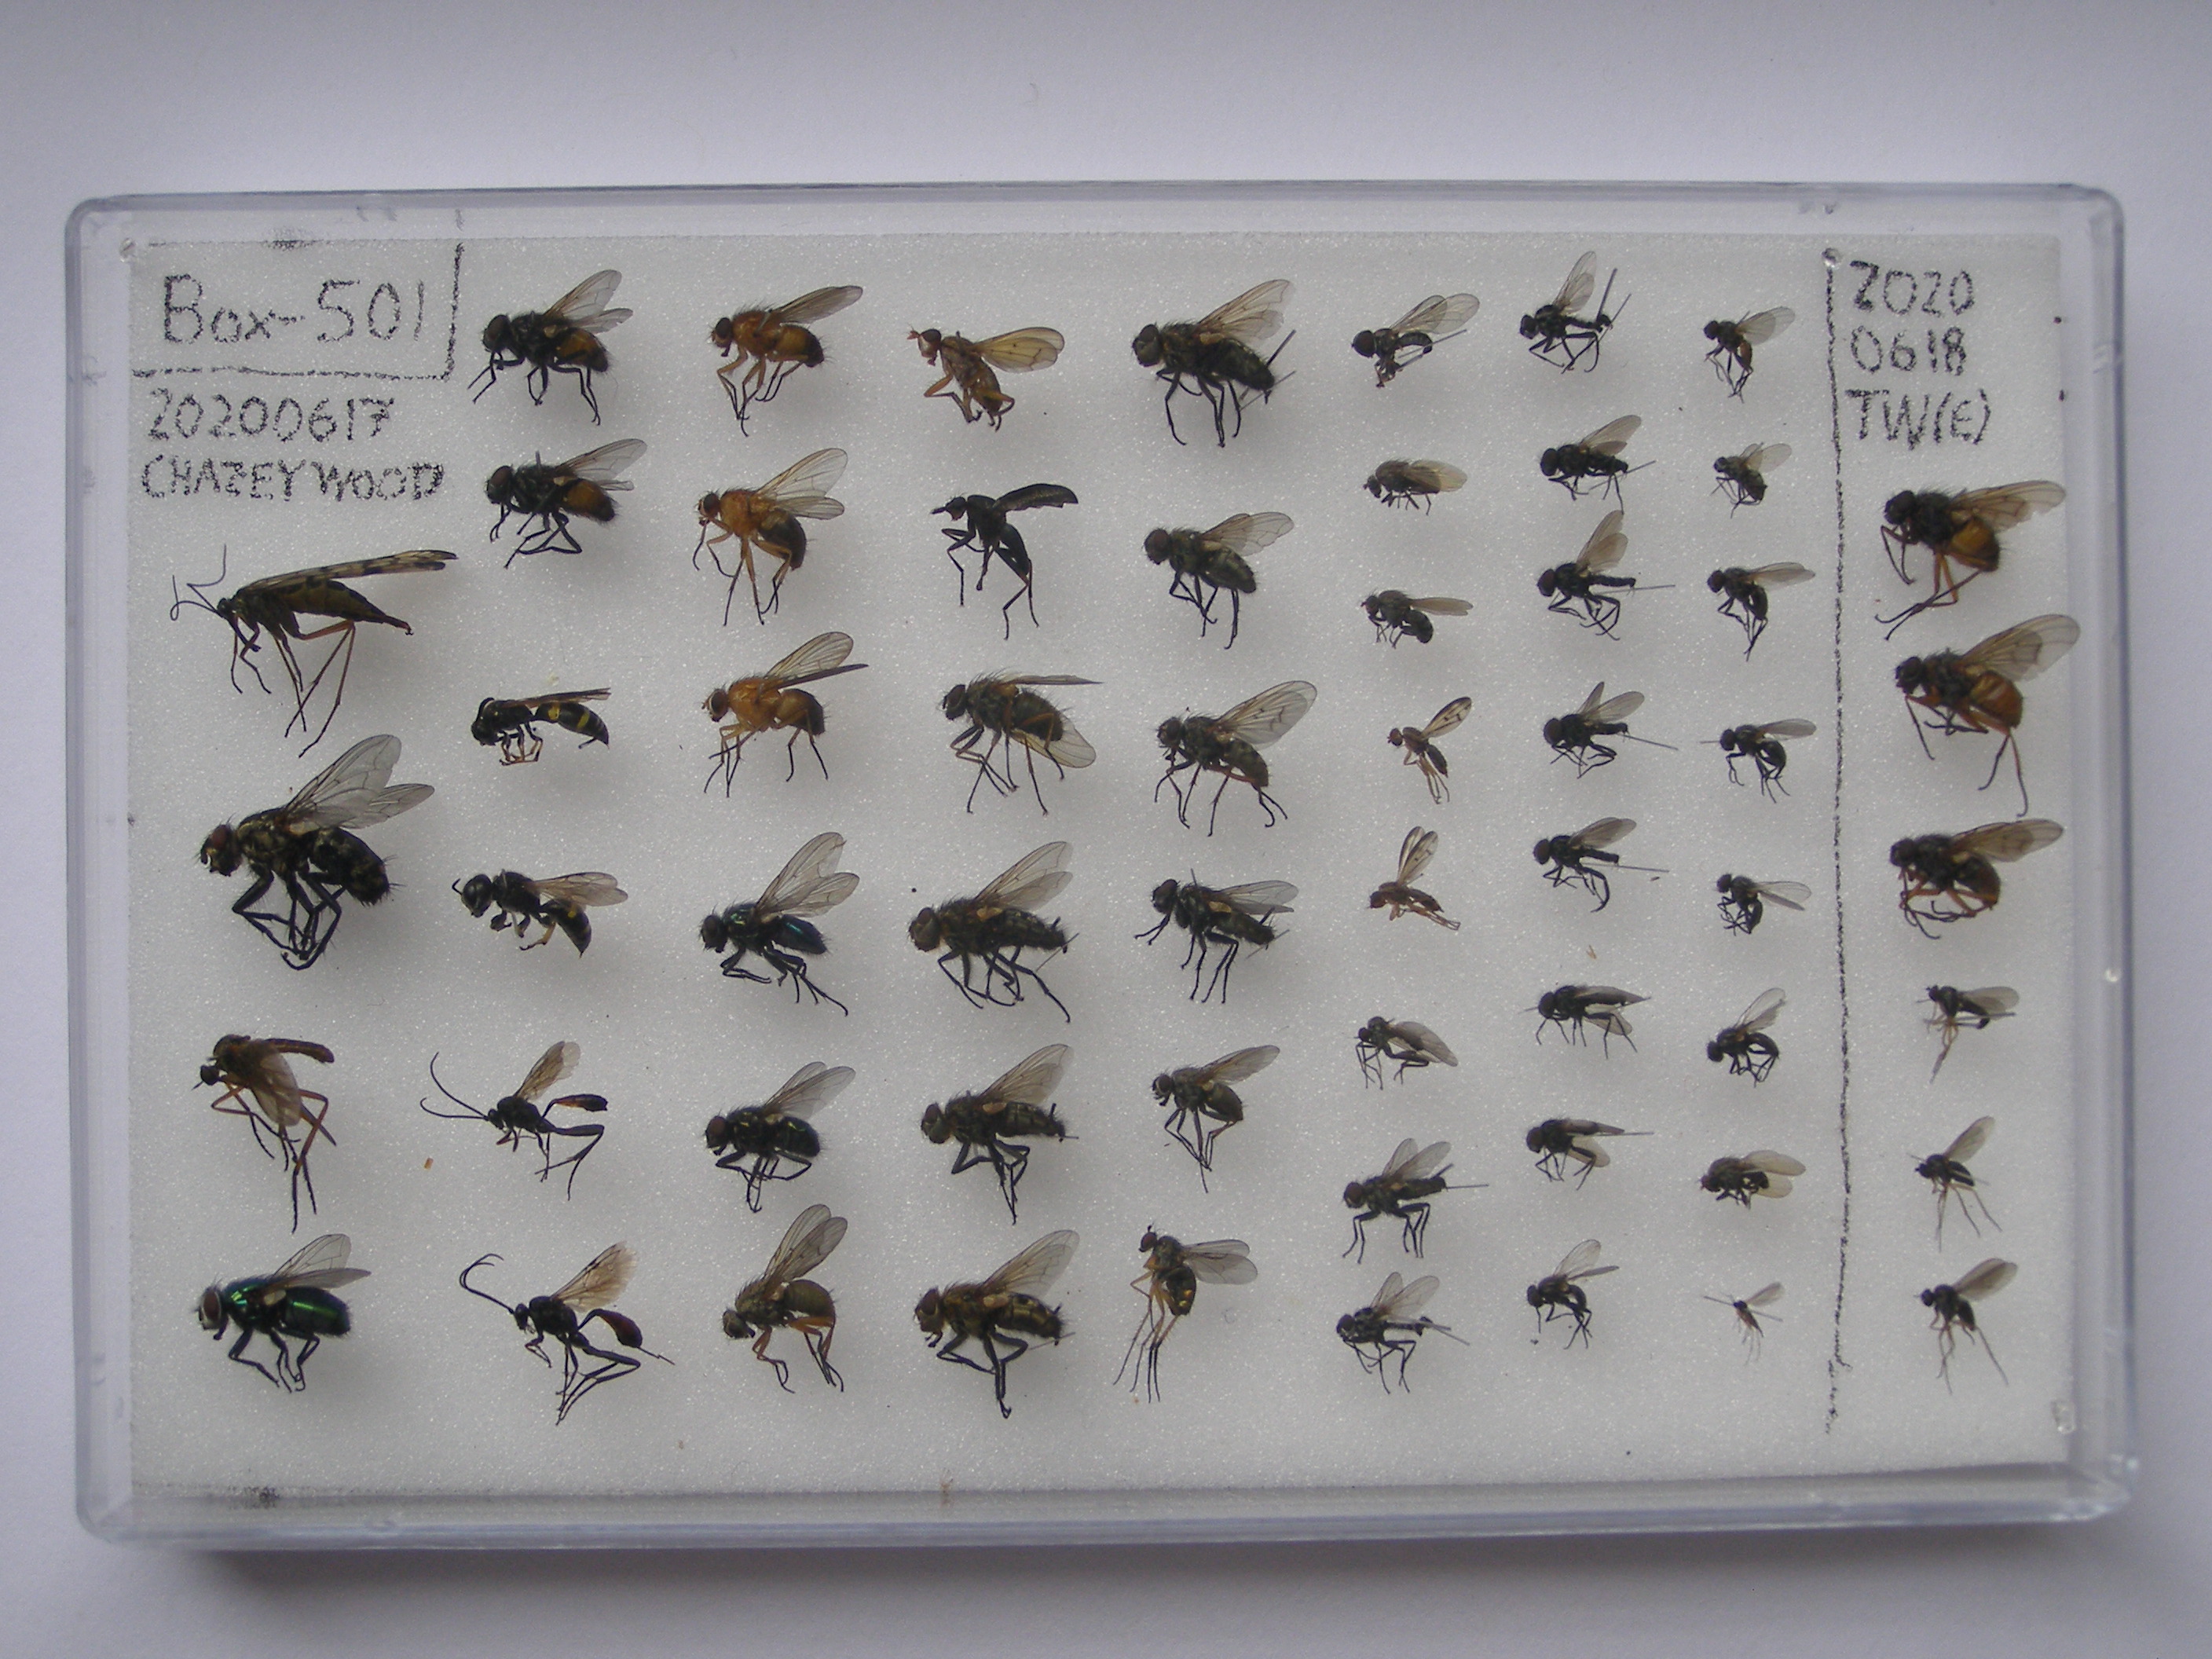 Box-501
20200617
CHAZEY WOOD
2020
0618
TW(E)